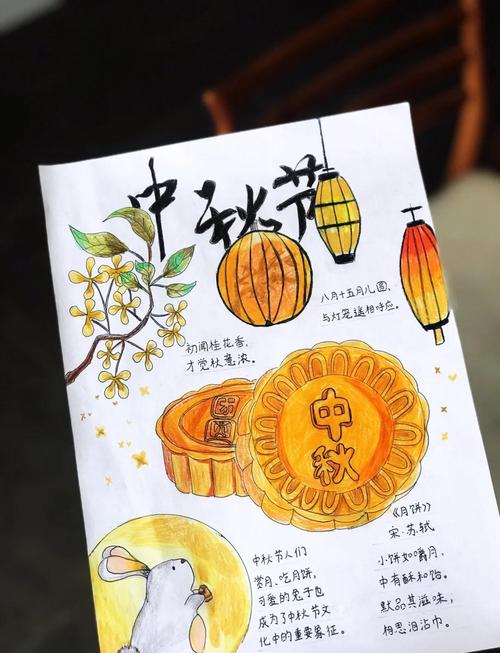 中秋节
八月十五月儿圆,
与灯笼遥相呼应。
初闻桂花香,
才觉秋意浓。
团圆
中
秋
中秋节人们
赏月、吃月饼,
可爱的兔子也
成为了中秋节文
化中的重要象征。
《月饼》
宋·苏轼
小饼如嚼月,
中有酥和饴。
默品其滋味,
相思泪沾巾。